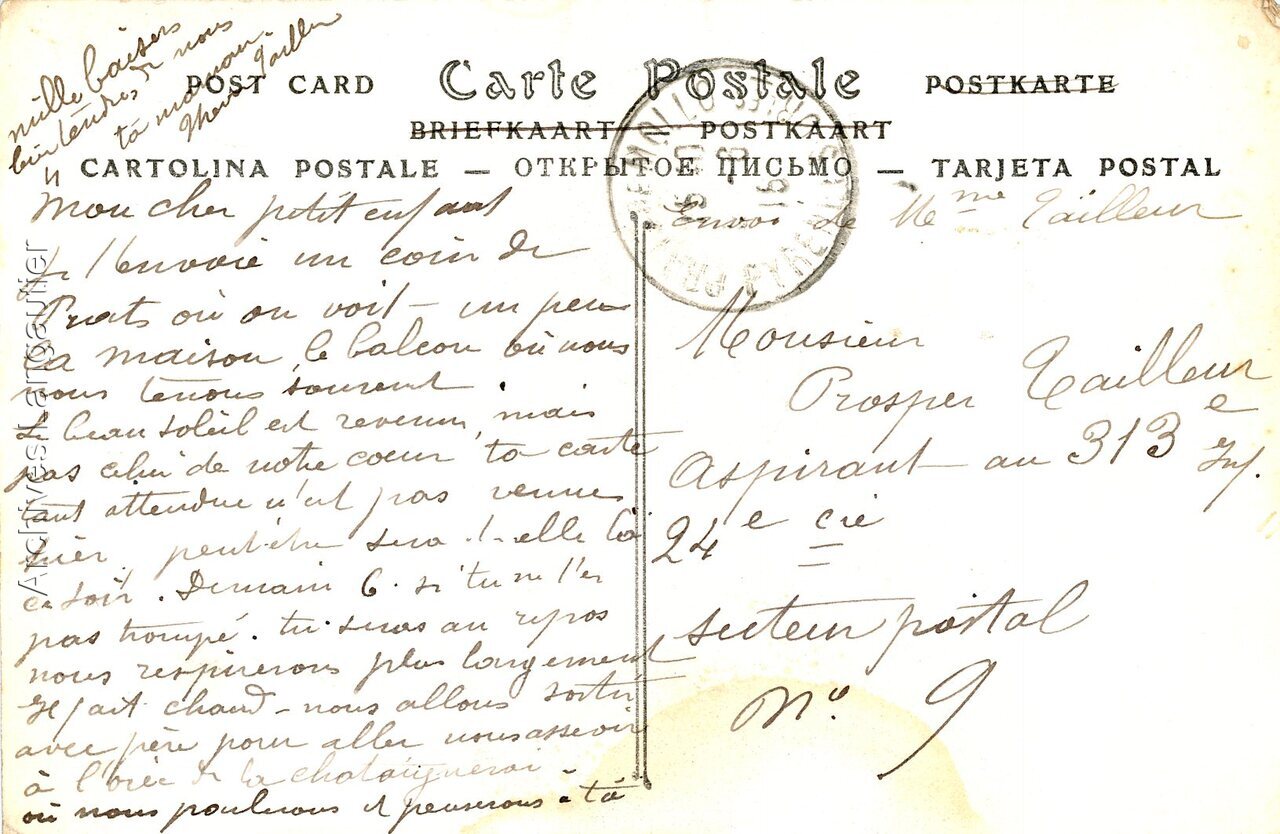 mille baisers
bien tendres de nous
4
ta maman
Tailleur
POST CARD Carte Postale POSTKARTE
BRIEFKAART — POSTKAART
CARTOLINA POSTALE — ОТКРЫТОЕ ПИСЬМО — TARJETA POSTAL
PRATS DE MOLLO
PYRENEES ORIENTALES
Mon cher petit enfant
Je t'envoie un coin de
Prats où on voit un peu
la maison, le balcon où nous
nous tenons souvent.
Le beau soleil est revenu, mais
pas celui de notre cœur, ta carte
tant attendue n'est pas venue
hier, peut être sera-t-elle là
ce soir. Demain 6. si tu ne t'es
pas trompé. tu seras au repos
nous respirerons plus largement
Il fait chaud - nous allons sortir
avec père pour aller nous asseoir
à l'orée de la chataigneraie
où nous parlerons et penserons à toi
Envoi de Mme Tailleur
Monsieur
Prosper Tailleur
Aspirant au 313e Inf.
24e cie
secteur postal
No 9
Archives Langautier